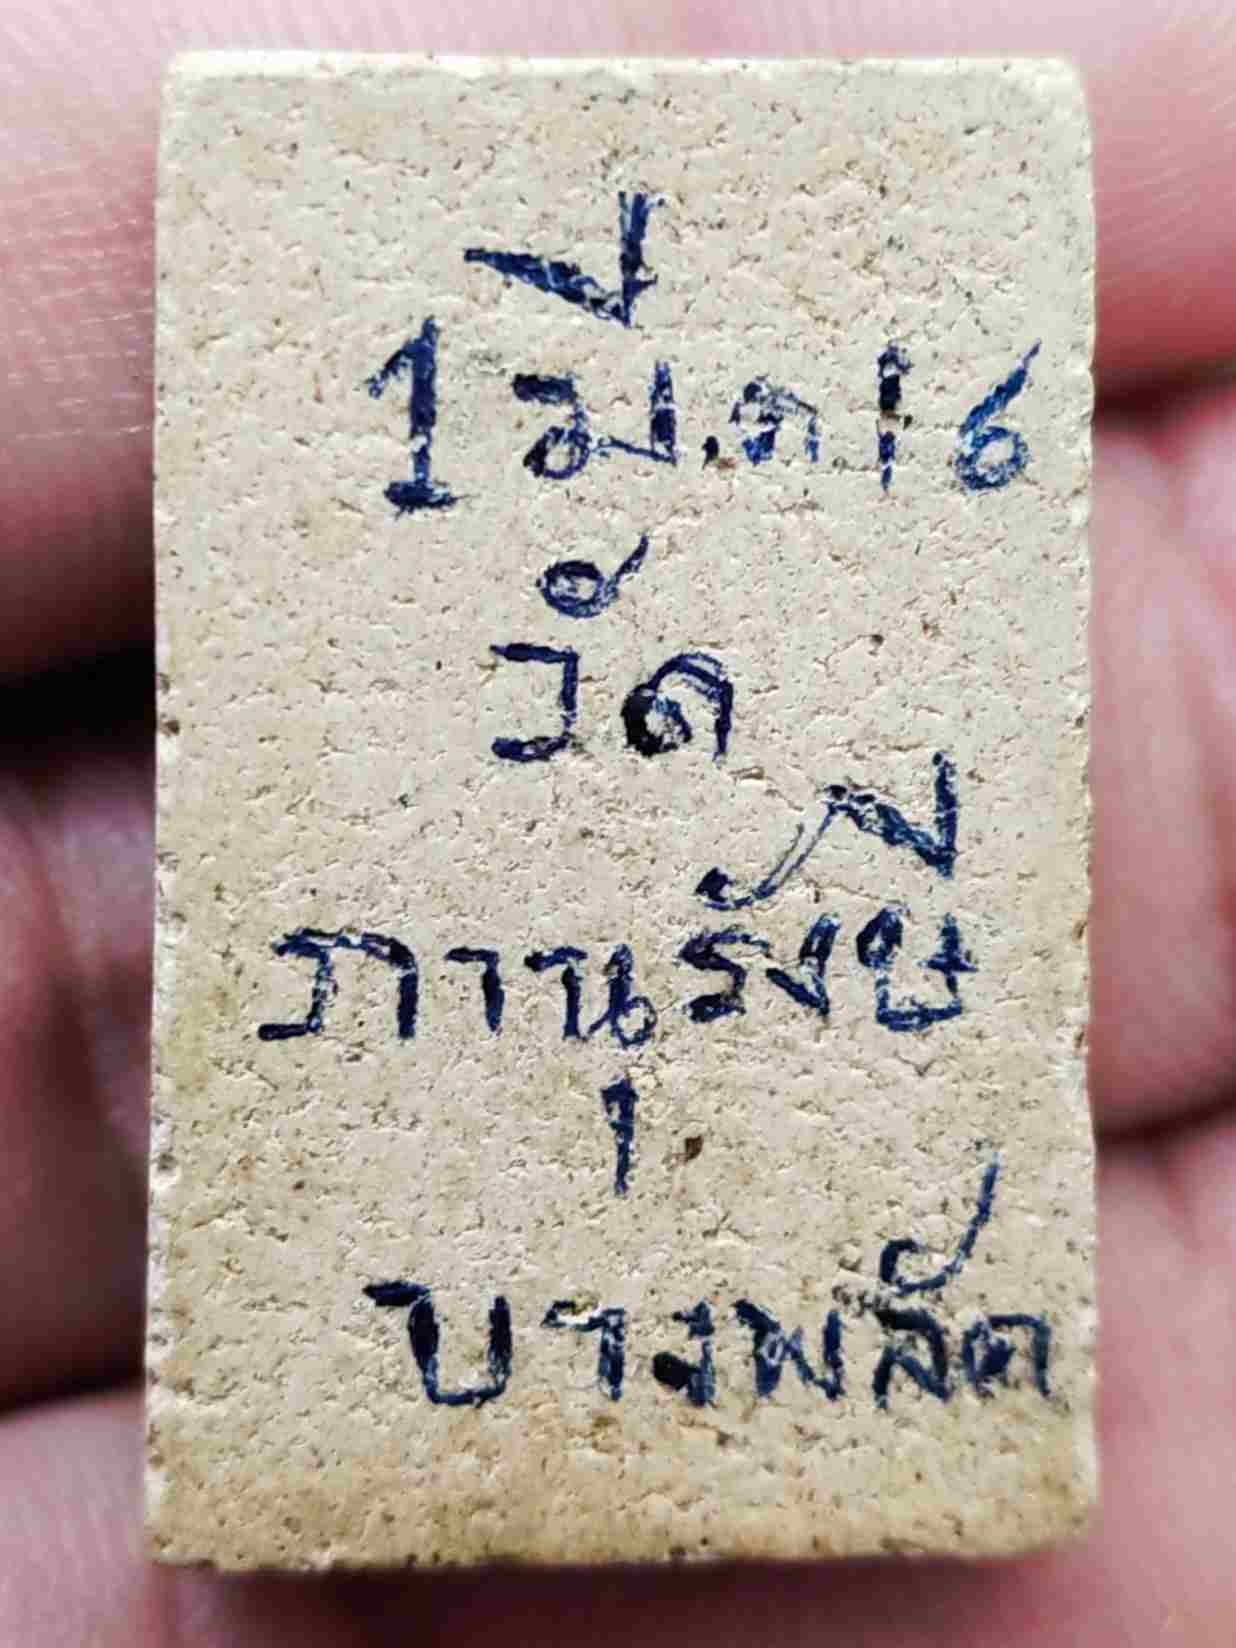 1 มี.ค 16
วัด
ภานุรังษี
บางพลัด